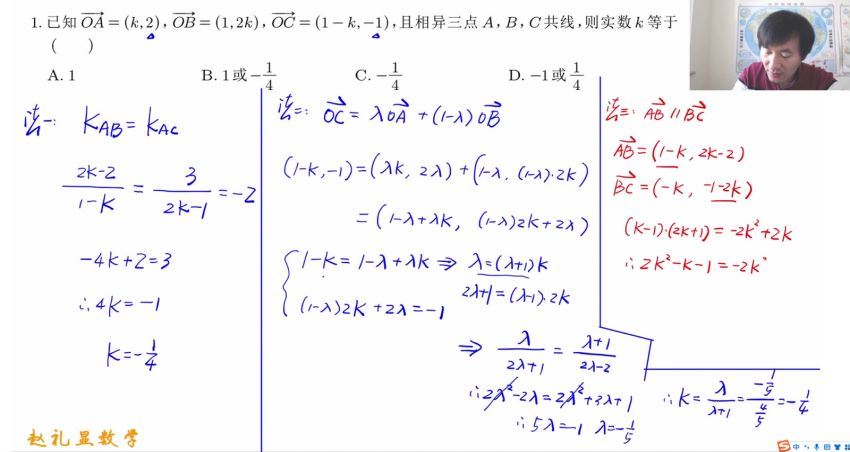 1. 已知 $\overrightarrow{OA}=(k,2)$, $\overrightarrow{OB}=(1,2k)$, $\overrightarrow{OC}=(1-k,-1)$, 且相异三点 A, B, C 共线, 则实数 k 等于
(    )
A. 1    B. 1 或 $-\frac{1}{4}$    C. $-\frac{1}{4}$    D. −1 或 $\frac{1}{4}$
法一: $K_{AB}=K_{AC}$
$\frac{2k-2}{1-k}=\frac{3}{2k-1}=-2$
$-4k+2=3$
∴ $4k=-1$
$k=-\frac{1}{4}$
法二: $\overrightarrow{OC}=\lambda\overrightarrow{OA}+(1-\lambda)\overrightarrow{OB}$
$(1-k,-1)=(\lambda k, 2\lambda)+(1-\lambda, (1-\lambda)\cdot 2k)$
$=(1-\lambda+\lambda k, (1-\lambda)2k+2\lambda)$
$1-k=1-\lambda+\lambda k$ ⇒ $\lambda=(\lambda+1)k$
$(1-\lambda)2k+2\lambda=-1$    $2\lambda+1=(\lambda-1)\cdot 2k$
⇒ $\frac{\lambda}{2\lambda+1}=\frac{\lambda+1}{2\lambda-2}$
∴ $2\lambda^2-2\lambda=2\lambda^2+3\lambda+1$
∴ $5\lambda=-1$  $\lambda=-\frac{1}{5}$
∴ $k=\frac{\lambda}{\lambda+1}=\frac{-\frac{1}{5}}{\frac{4}{5}}=-\frac{1}{4}$
法三: $\overrightarrow{AB}//\overrightarrow{BC}$
$\overrightarrow{AB}=(1-k, 2k-2)$
$\overrightarrow{BC}=(-k, -1-2k)$
$(k-1)\cdot(2k+1)=-2k^2+2k$
∴ $2k^2-k-1=-2k^2$
赵礼显数学